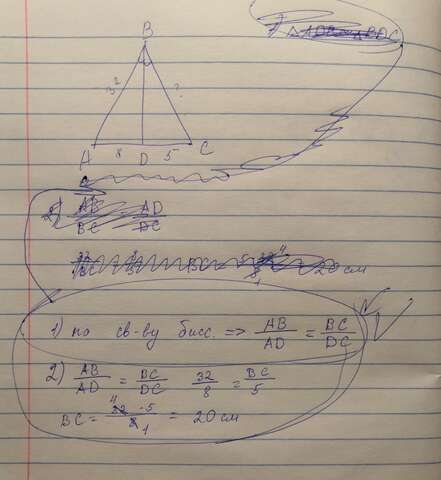 B
32 ?
A 8 D 5 C
2) AB/BC AD/DC
20 см
1) по св-ву бисс. => AB/AD = BC/DC
2) AB/AD = BC/DC 32/8 = BC/5
BC = 32·5/8 = 20 см